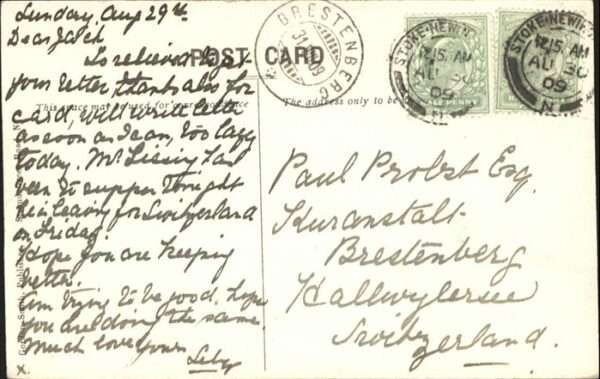 Sunday, Aug 29th
Dear Jack
So relieved to get
your letter, thanks also for
card, will write letter
as soon as I can, too lazy
today. Mr Lissing had
been to supper tonight
he is leaving for Switzerland
on Friday.
Hope you are keeping
better.
Am trying to be good, hope
you are doing the same.
Much love yours
X.
POST CARD
This space may be used for correspondence
The address only to be
BRESTENBERG
31 09
STOKE-NEWINGTON
12.15 AM
AU 30
09
N
STOKE-NEWINGTON
12.15 AM
AU 30
09
N
Paul Probst Esq.
Kuranstalt
Brestenberg
Hallwylersee
Switzerland.